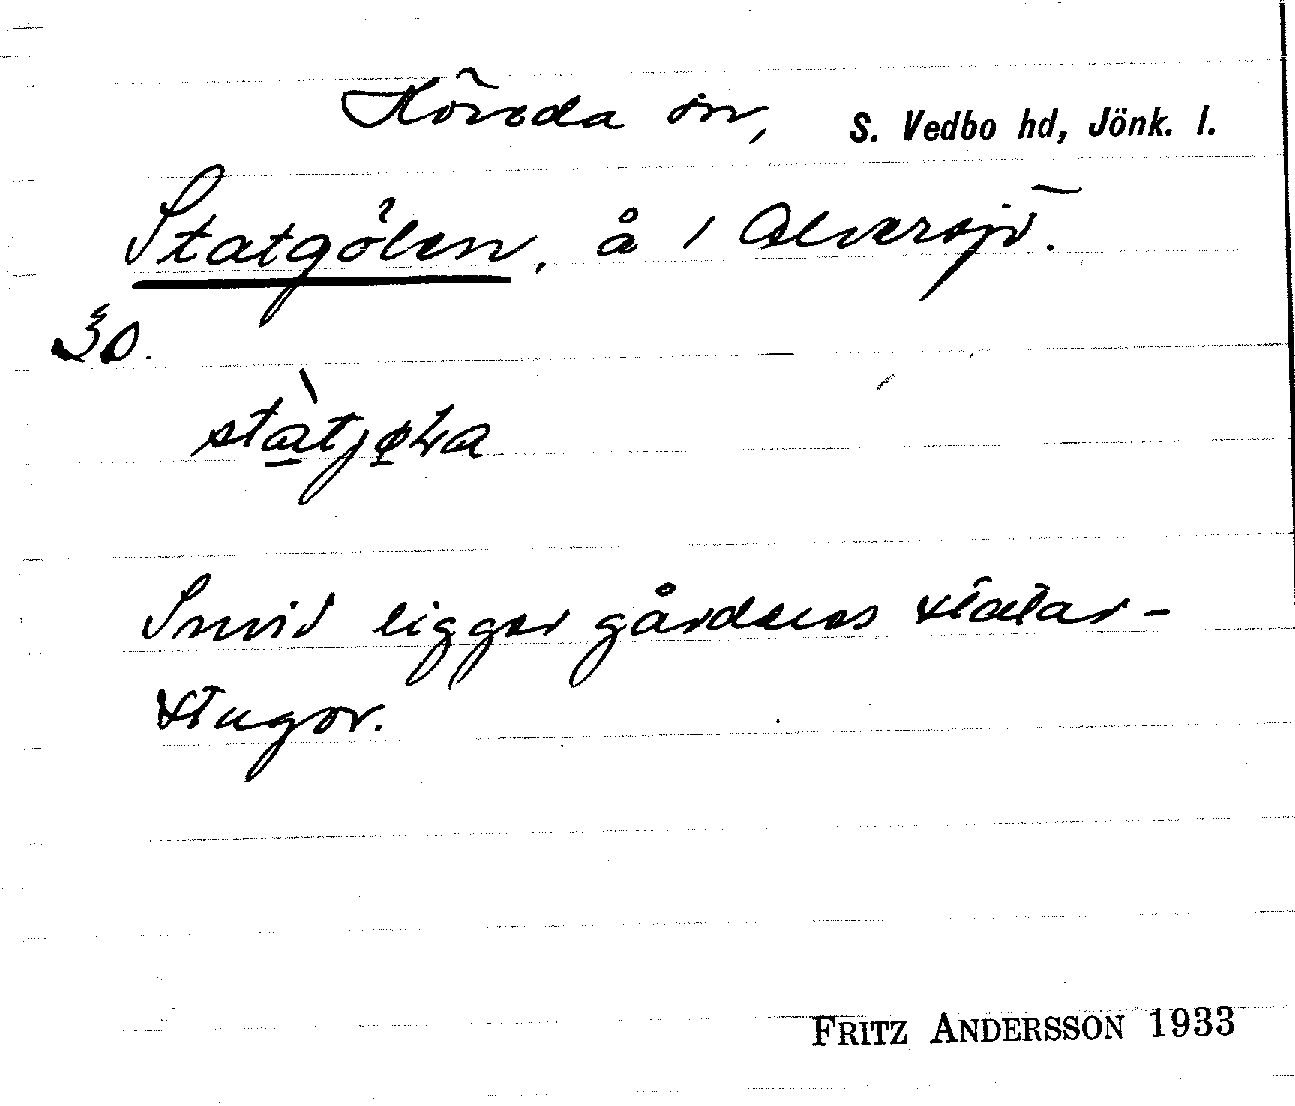 Höreda sn, S. Vedbo hd, Jönk. l.
Statgölen, å 1 Alversjö.
30.
stàtjøLa
Invid ligger gårdens statar-
stugor.
FRITZ ANDERSSON 1933